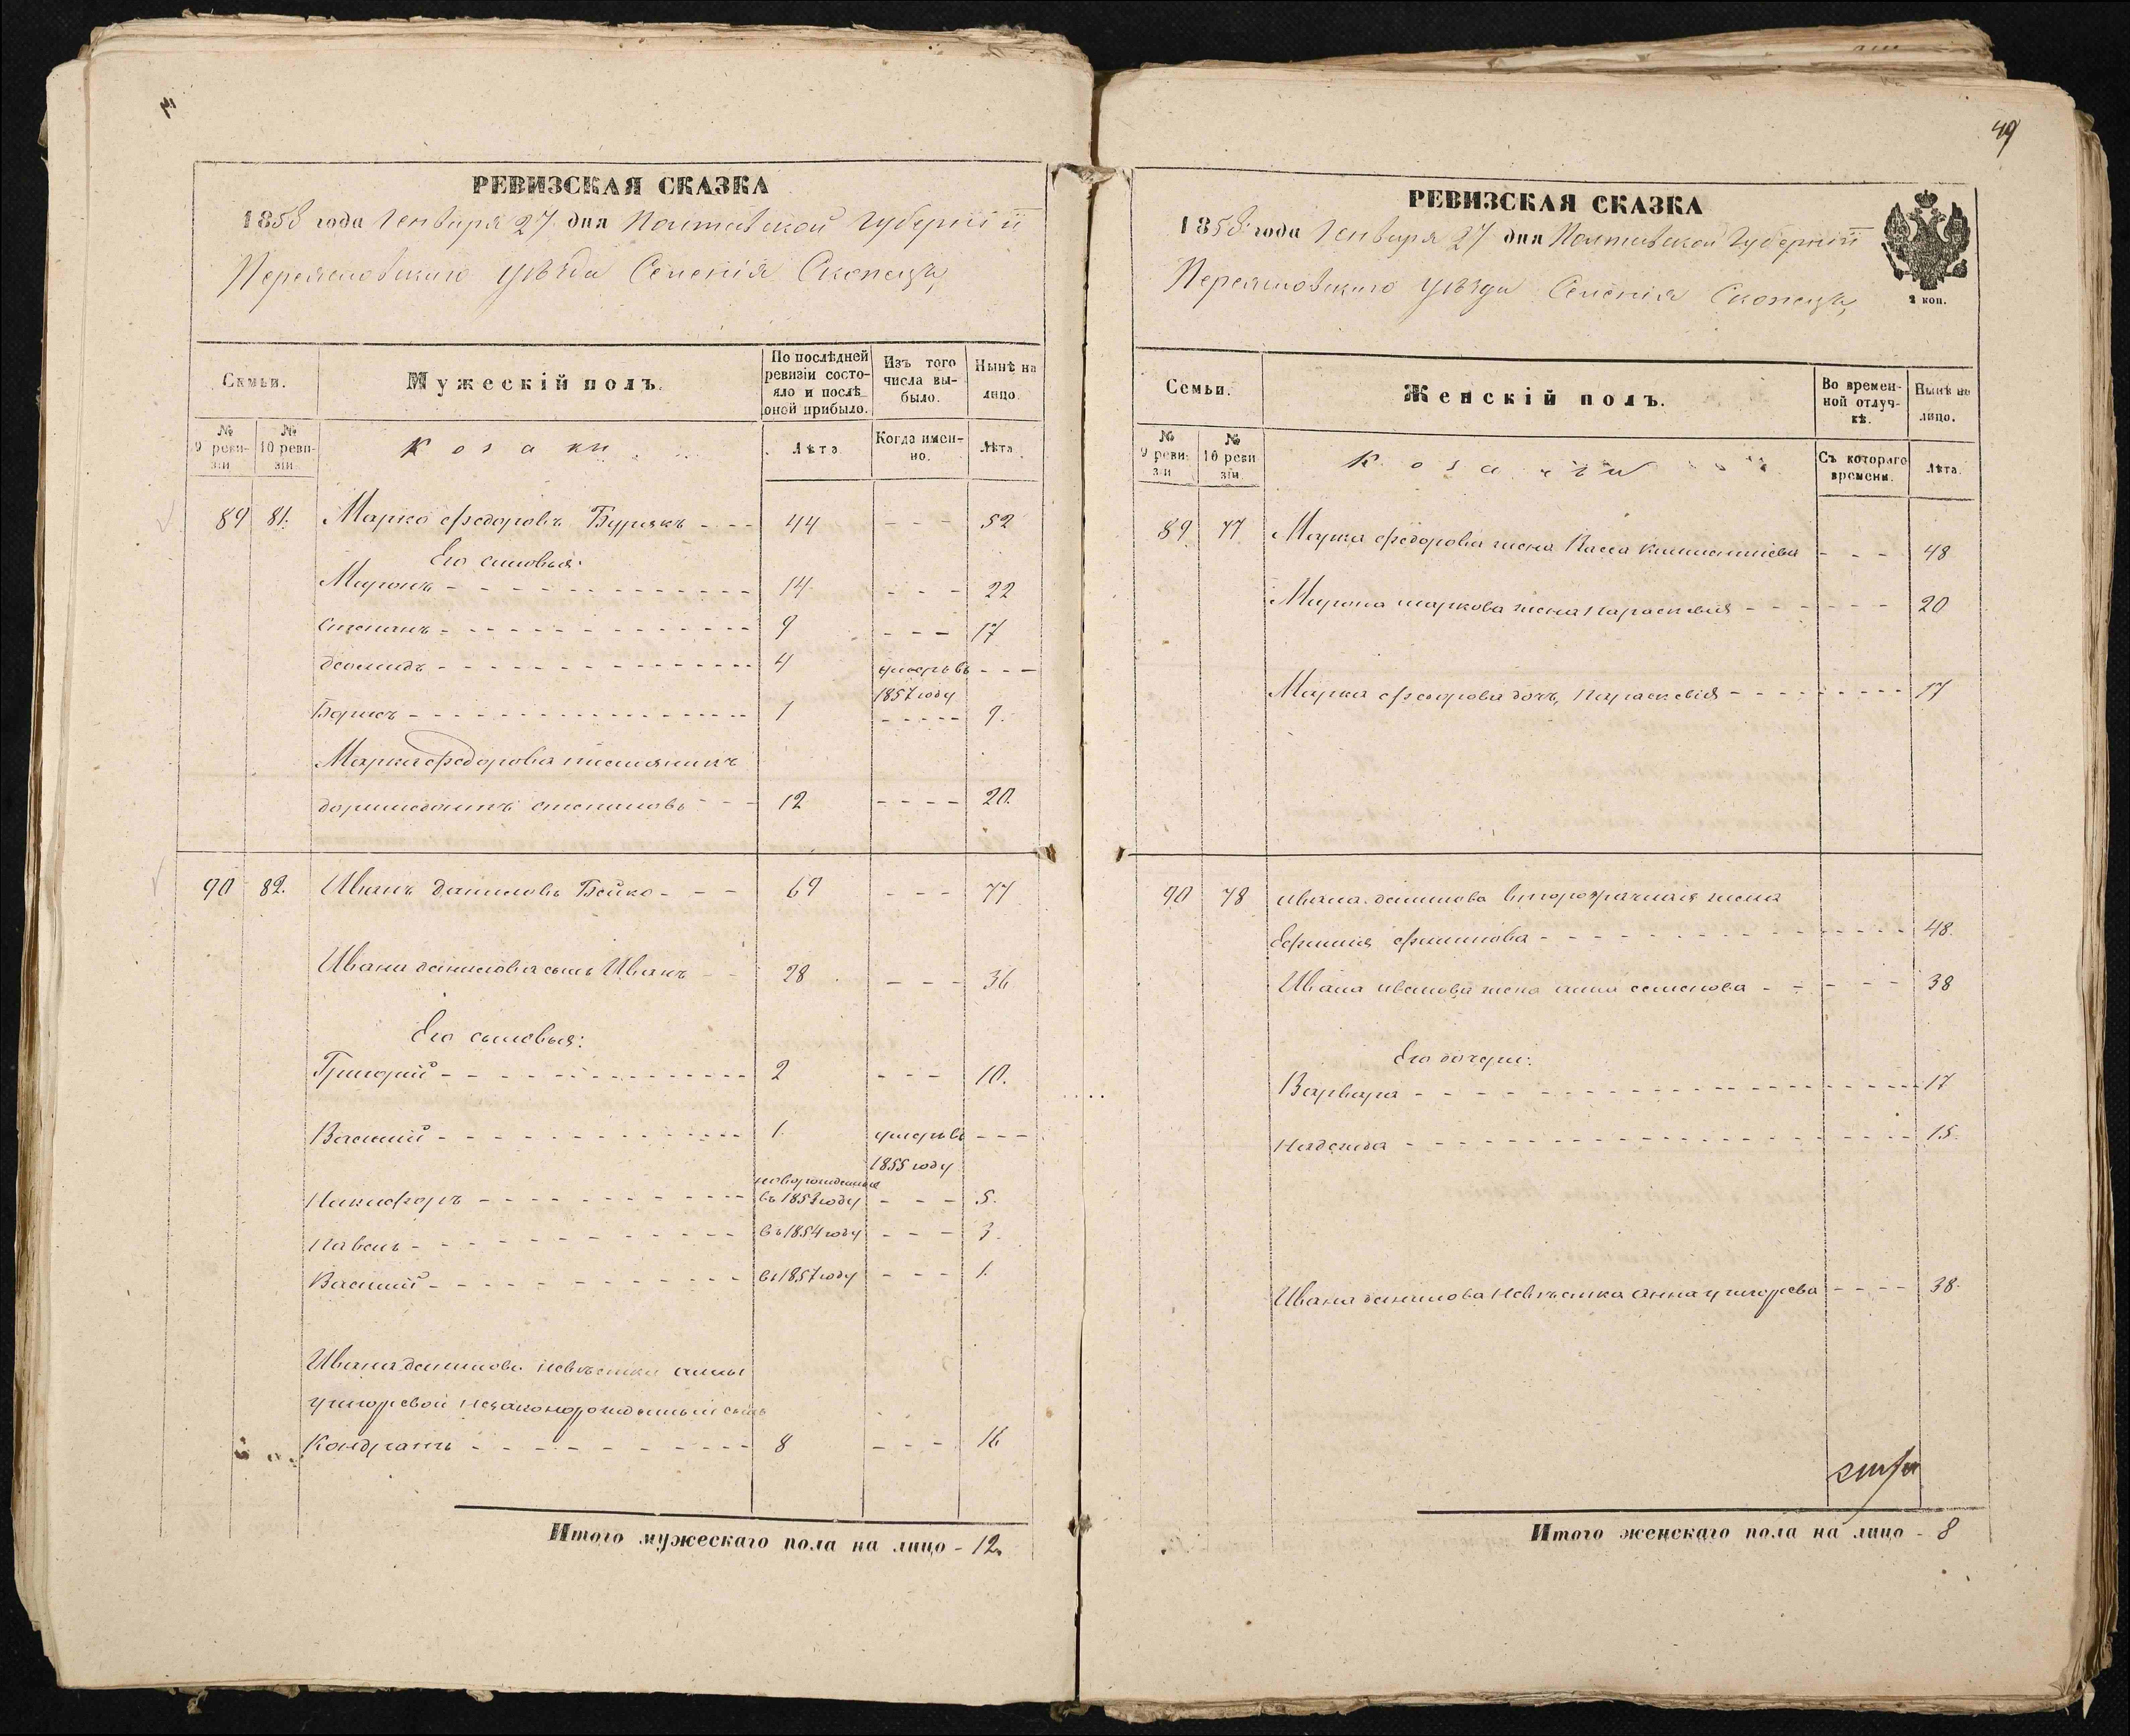 49
РЕВИЗСКАЯ СКАЗКА
1858 года Генваря 27 дня Полтавской Губерніи
Переяславскаго уѣзда Селенія Скопецъ,
Семьи.
Мужескій полъ.
По послѣдней ревизіи состояло и послѣ оной прибыло.
Изъ того числа выбыло.
Нынѣ на лицо.
№ 9 ревизіи
№ 10 ревизіи
Козаки
Лѣта
Когда именно.
Лѣта
89 81. Марко Федоровъ Бурякъ - - - 44 - - - 52
Его сыновья:
Миронъ - - - 14 - - - 22
Степанъ - - - 9 - - - 17
Деомидъ - - - 4 умеръ въ - - -
1857 году
Борисъ - - - 1 - - - 9.
Марка Федорова племянникъ
Дормидонтъ Степановъ - - - 12 - - - 20.
90 82. Иванъ Даниловъ Бойко - - - 69 - - - 77
Ивана Данилова сынъ Иванъ - - 28 - - - 36
Его сыновья:
Григорий - - - 2 - - - 10.
Василий - - - 1. умеръ въ - - -
1855 году
новорожденные
Никифоръ - - - въ 1852 году - - - 5.
Павелъ - - - въ 1854 году - - - 3.
Василий - - - въ 1857 году - - - 1.
Ивана Данилова невѣстки Анны
незаконорожденный сынъ
Кондратъ - - - 8 - - - 16
Итого мужескаго пола на лицо - 12.
РЕВИЗСКАЯ СКАЗКА
1858 года Генваря 27 дня Полтавской Губерніи
Переяславскаго уѣзда Селенія Скопецъ,
2 коп.
Семьи.
Женскій полъ.
Во временной отлучкѣ.
Нынѣ на лицо.
№ 9 ревизіи
№ 10 ревизіи
Съ котораго времени.
Лѣта.
89 77 Марка Федорова жена - - - 48
Мирона Маркова жена Параскевия - - - 20
Марка Федорова дочь, Параскевия - - - 17
90 78 Ивана Данилова второбрачная жена
- - - 48.
Ивана Иванова жена Анна Семенова - - - 38
Его дочери:
Варвара - - - 17
Надежда - - - 15.
Ивана Данилова невѣстка Анна - - - 38.
Итого женскаго пола на лицо - 8